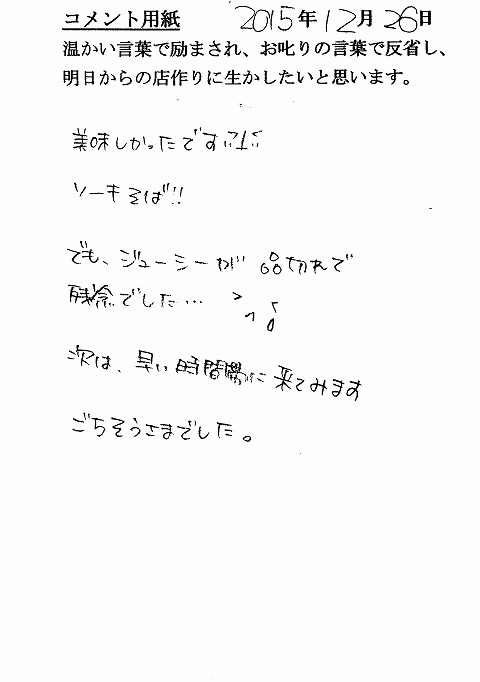 コメント用紙 2015年12月26日
温かい言葉で励まされ、お叱りの言葉で反省し、
明日からの店作りに生かしたいと思います。
美味しかったです
ソーキそば!!
でも、ジューシーが品切れで
残念でした…
次は、早い時間帯に来てみます
ごちそうさまでした。